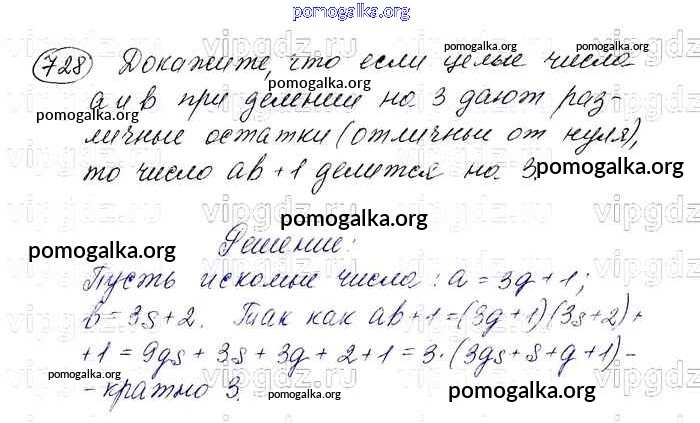 pomogalka.org
728 Докажите, что если целые числа
pomogalka.org pomogalka.org
а и в при делении на 3 дают раз-
pomogalka.org
личные остатки (отличные от нуля),
pomogalka.org
то число ав + 1 делится на 3.
pomogalka.org
pomogalka.org
Решение:
pomogalka.org pomogalka.org
Пусть искомые числа: а = 3g + 1;
в = 3s + 2. Так как ав + 1 = (3g + 1)(3s + 2) +
pomogalka.org
+ 1 = 9gs + 3s + 3g + 2 + 1 = 3 · (3gs + s + g + 1) -
pomogalka.org pomogalka.org
- кратно 3.
pomogalka.org
pomogalka.org